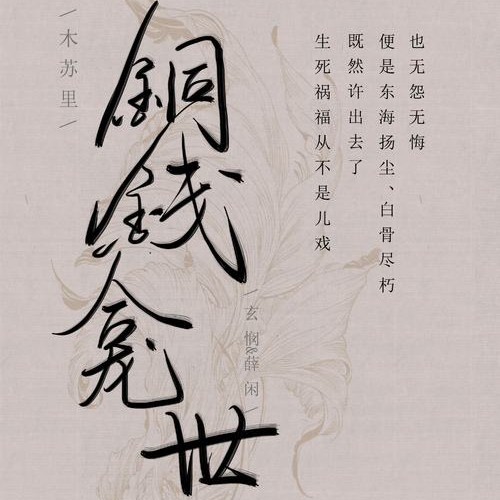 /木苏里/
銅錢龛世
/玄悯&薛闲/
生死祸福从不是儿戏
既然许出去了
便是东海扬尘、白骨尽朽
也无怨无悔